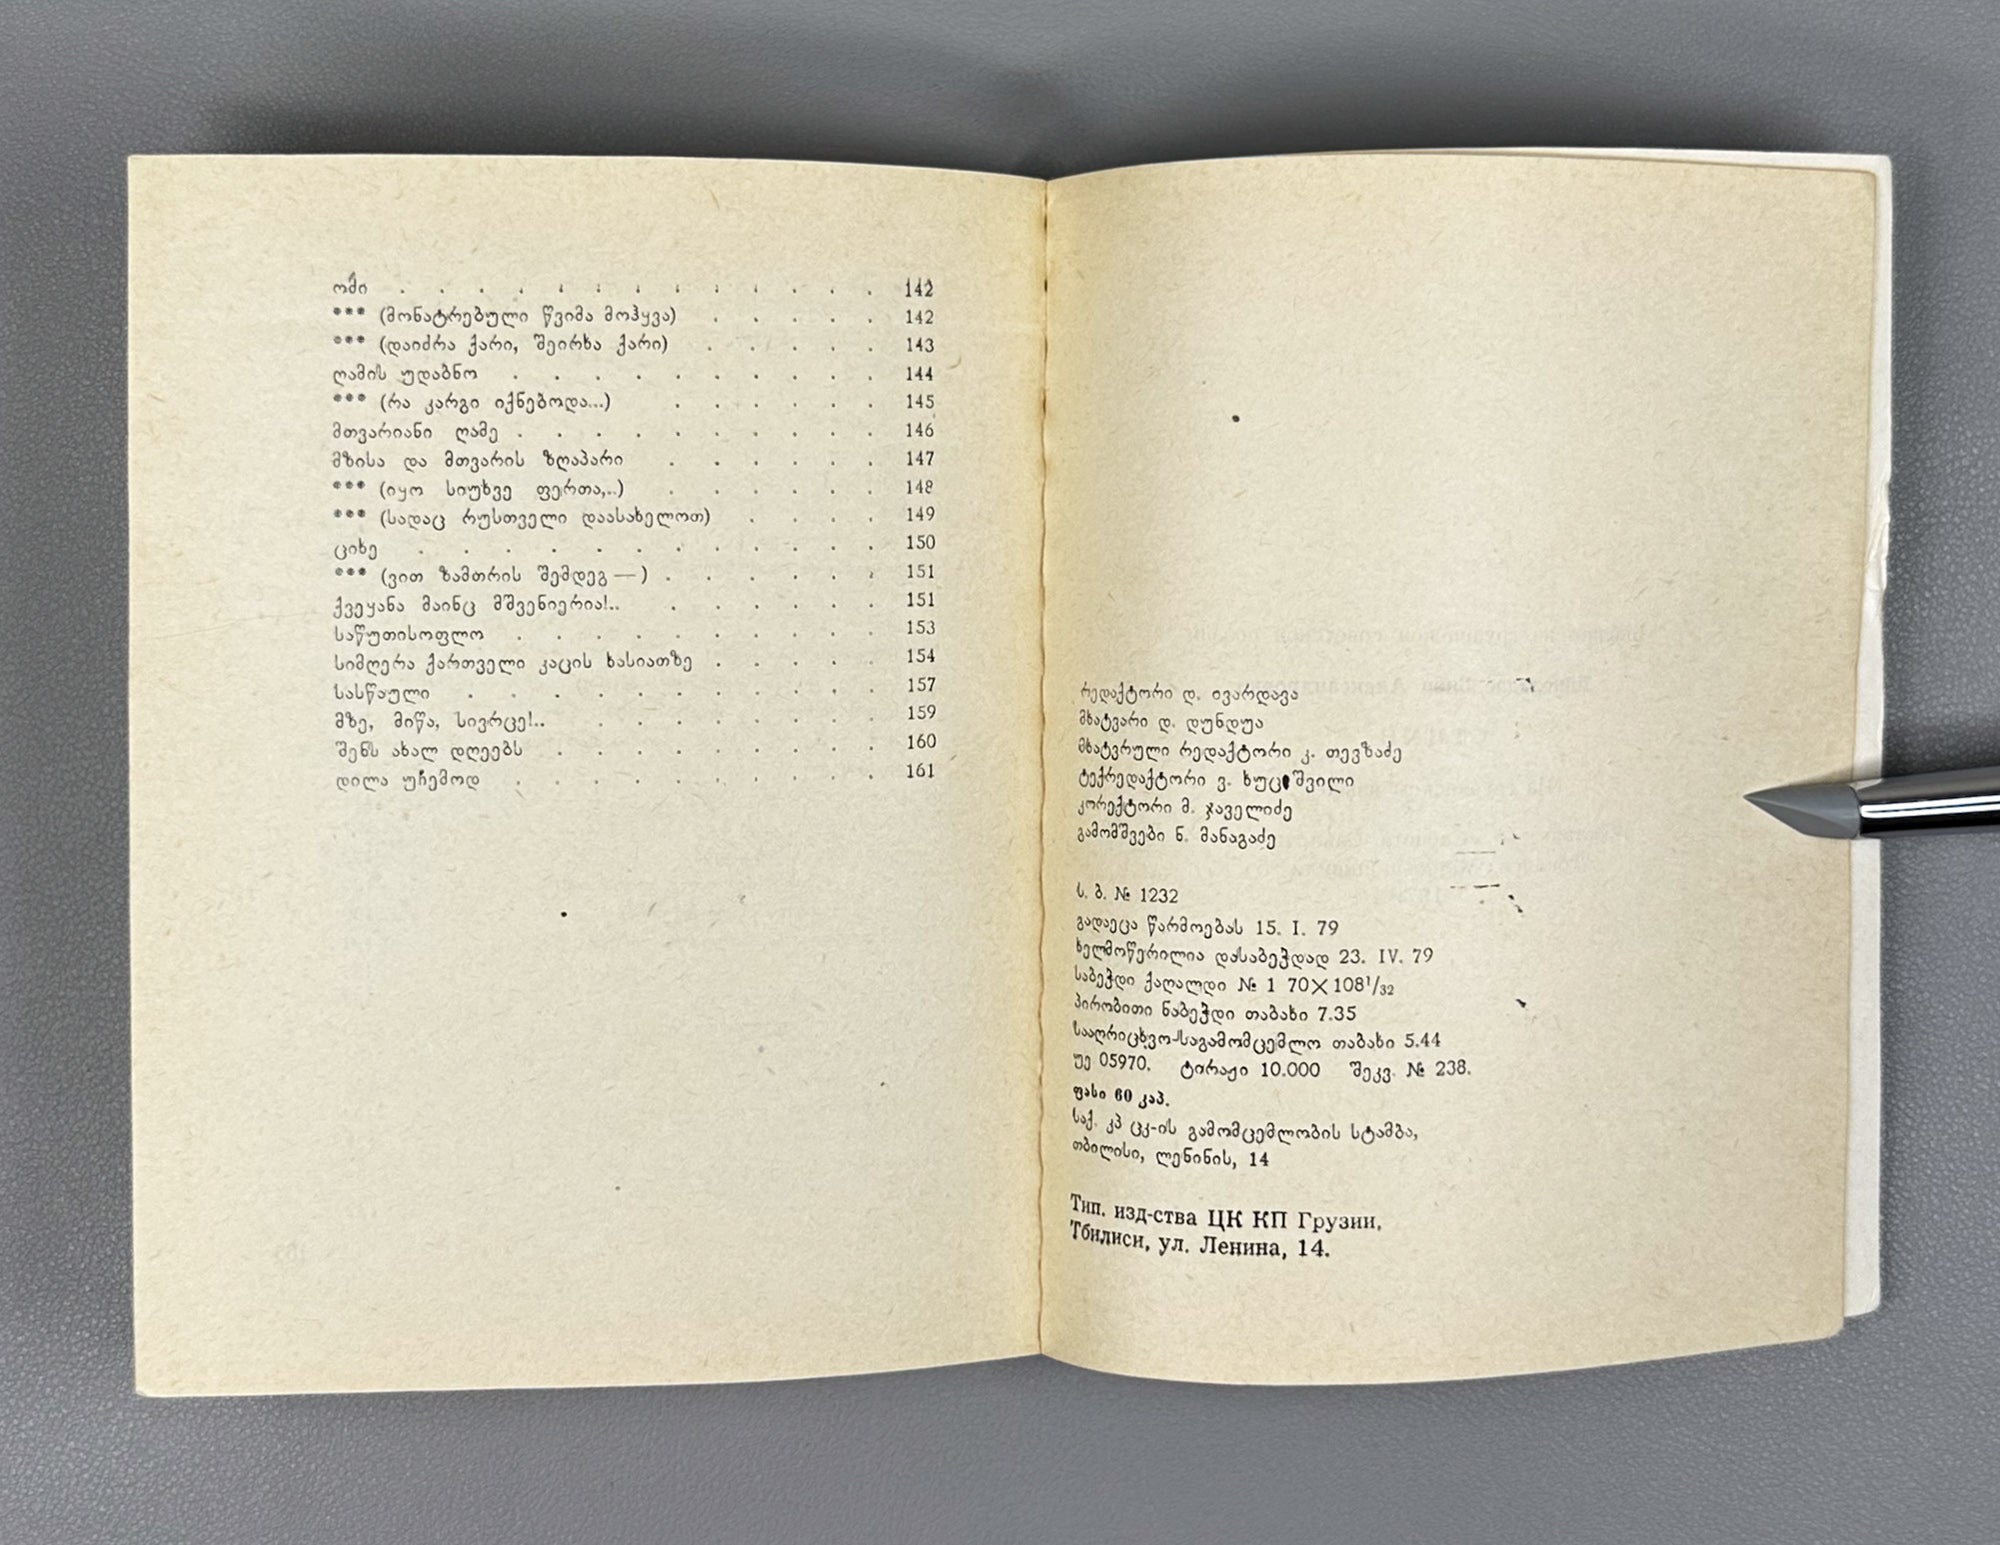 ომი . . . . . . . . . . . . . 142
*** (მონატრებული წვიმა მოჰყვა) . . . . . 142
*** (დაიძრა ქარი, შეირხა ქარი) . . . . . 143
ღამის უდაბნო . . . . . . . . . . 144
*** (რა კარგი იქნებოდა...) . . . . . . 145
მთვარიანი ღამე . . . . . . . . . . 146
მზისა და მთვარის ზღაპარი . . . . . . 147
*** (იყო სიუხვე ფერთა,..) . . . . . . 148
*** (სადაც რუსთველი დაასახელოთ) . . . . 149
ციხე . . . . . . . . . . . . 150
*** (ვით ზამთრის შემდეგ — ) . . . . . . 151
ქვეყანა მაინც მშვენიერია!.. . . . . . . 151
საწუთისოფლო . . . . . . . . . . 153
სიმღერა ქართველი კაცის ხასიათზე . . . . . 154
სასწაული . . . . . . . . . . . 157
მზე, მიწა, სივრცე!.. . . . . . . . . 159
შენს ახალ დღეებს . . . . . . . . . 160
დილა უჩემოდ . . . . . . . . . . 161
რედაქტორი დ. ივარდავა
მხატვარი დ. დუნდუა
მხატვრული რედაქტორი კ. თევზაძე
ტექრედაქტორი ვ. ხუციშვილი
კორექტორი მ. ჯაველიძე
გამომშვები ნ. მანაგაძე
ს. ბ. № 1232
გადაეცა წარმოებას 15. I. 79
ხელმოწერილია დასაბეჭდად 23. IV. 79
საბეჭდი ქაღალდი № 1 70×108¹/₃₂
პირობითი ნაბეჭდი თაბახი 7.35
სააღრიცხვო-საგამომცემლო თაბახი 5.44
უე 05970. ტირაჟი 10.000 შეკვ. № 238.
ფასი 60 კაპ.
საქ. კპ ცკ-ის გამომცემლობის სტამბა,
თბილისი, ლენინის, 14
Тип. изд-ства ЦК КП Грузии,
Тбилиси, ул. Ленина, 14.